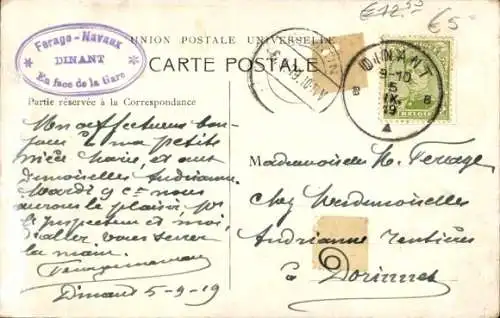 €12.50
€5
UNION POSTALE UNIVERSELLE
Ferage-Navaux
DINANT
En face de la Gare
CARTE POSTALE
DINANT
9-10
5
IX
19
B B
Partie réservée à la Correspondance
Mon affectueux bon-
jour à ma petite
nièce Marie, et aux
demoiselles Andrianne.
Mardi 9 ct nous
aurons le plaisir, Mr
l'Inspecteur et moi,
d'aller vous serrer
la main.
Dinant 5-9-19
Mademoiselle M. Ferage
chez Mesdemoiselles
Andrianne Rentières
à Dorinnes
6